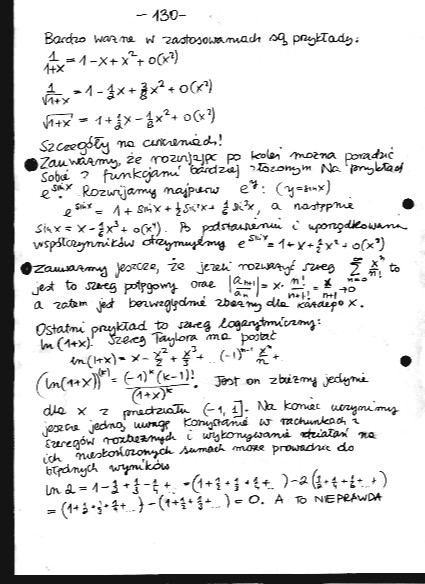 - 130 -
Bardzo ważne w zastosowaniach są przykłady:
1/(1+x) = 1 - x + x² + o(x²)
1/√(1+x) = 1 - ½x + ⅜x² + o(x²)
√(1+x) = 1 + ½x - ⅛x² + o(x²)
Szczegóły na ćwiczeniach!
Zauważmy, że rozwijając po kolei można poradzić
sobie z funkcjami bardziej złożonym Na przykład
e^(sin x). Rozwijamy najpierw e^y: (y = sin x)
e^(sin x) = 1 + sin x + ½ sin²x + ⅙ sin³x, a następnie
sin x = x - ⅙x³ + o(x⁴). Po podstawieniu i uporządkowaniu
współczynników otrzymujemy e^(sin x) = 1 + x + ½x² + o(x²)
Zauważmy jeszcze, że jeżeli rozważyć szereg ∑_(n=0)^∞ xⁿ/n! to
jest to szereg potęgowy oraz |a_(n+1)/a_n| = x · n!/(n+1)! = x/(n+1) → 0
a zatem jest bezwzględnie zbieżny dla każdego x.
Ostatni przykład to szereg logarytmiczny:
ln(1+x). Szereg Taylora ma postać
ln(1+x) = x - x²/2 + x³/3 + .. (-1)^(n-1) xⁿ/n +
(ln(1+x))^(k) = (-1)^k (k-1)!/(1+x)^k. Jest on zbieżny jedynie
dla x z przedziału (-1, 1]. Na koniec uczynimy
jeszcze jedną uwagę Korzystanie w rachunkach z
szeregów rozbieżnych i wykonywanie działań na
ich nieskończonych sumach może prowadzić do
błędnych wyników
ln 2 = 1 - ½ + ⅓ - ¼ + .. = (1 + ½ + ⅓ + ¼ + ..) - 2(½ + ¼ + ⅙ + .. +)
= (1 + ½ + ⅓ + ¼ + ..) - (1 + ½ + ⅓ + ..) = 0. A TO NIEPRAWDA